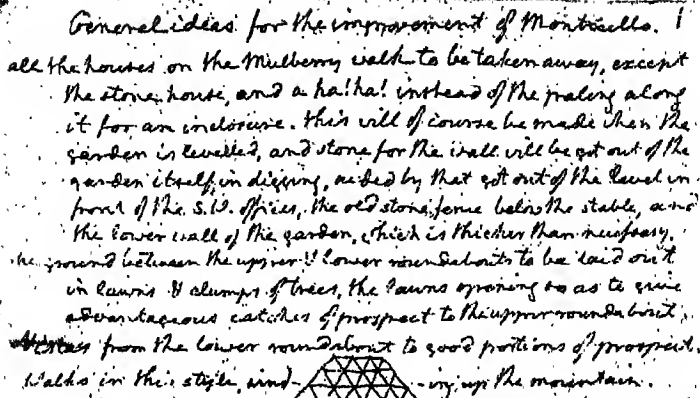 General ideas for the improvement of Monticello. 1
all the houses on the Mulberry walk to be taken away, except
the stone house, and a ha! ha! instead of the paling along
it for an inclosure. this will of course be made when the
garden is levelled, and stone for the wall will be got out of the
garden itself, in digging, aided by that got out of the level in
front of the S.W. offices, the old stone fence below the stable, and
the lower wall of the garden, which is thicker than necessary.
the ground between the upper & lower roundabouts to be laid out
in lawns & clumps of trees, the lawns opening so as to give
advantageous catches of prospect to the upper roundabout.
Vistas from the lower roundabout to good portions of prospect.
walks in this style, wind- -ing up the mountain.